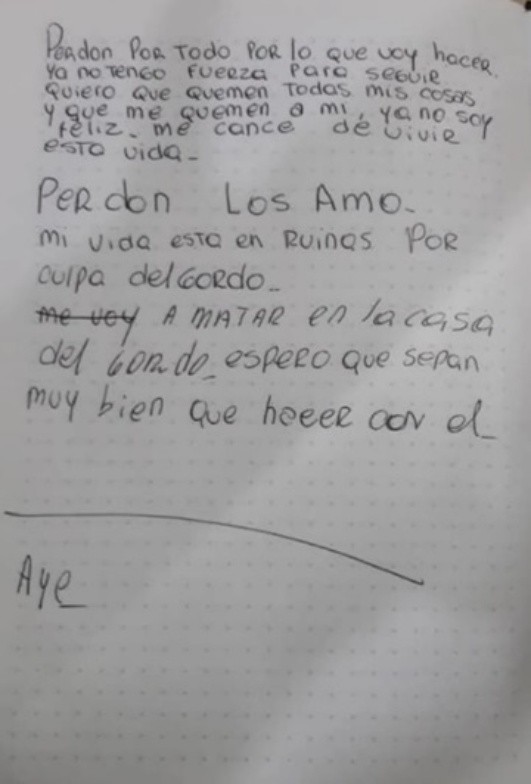 Perdon Por Todo Por lo que voy hacer.
Ya no Tengo Fuerza Para seguir
Quiero que quemen Todas mis cosas
y que me quemen a mi, ya no soy
feliz. me cance de vivir
esta vida_
Perdon Los Amo_
mi vida esta en Ruinas Por
culpa del Gordo_
me voy A MATAR en la casa
del Gordo_ espero que sepan
muy bien que hacer con el_
Aye